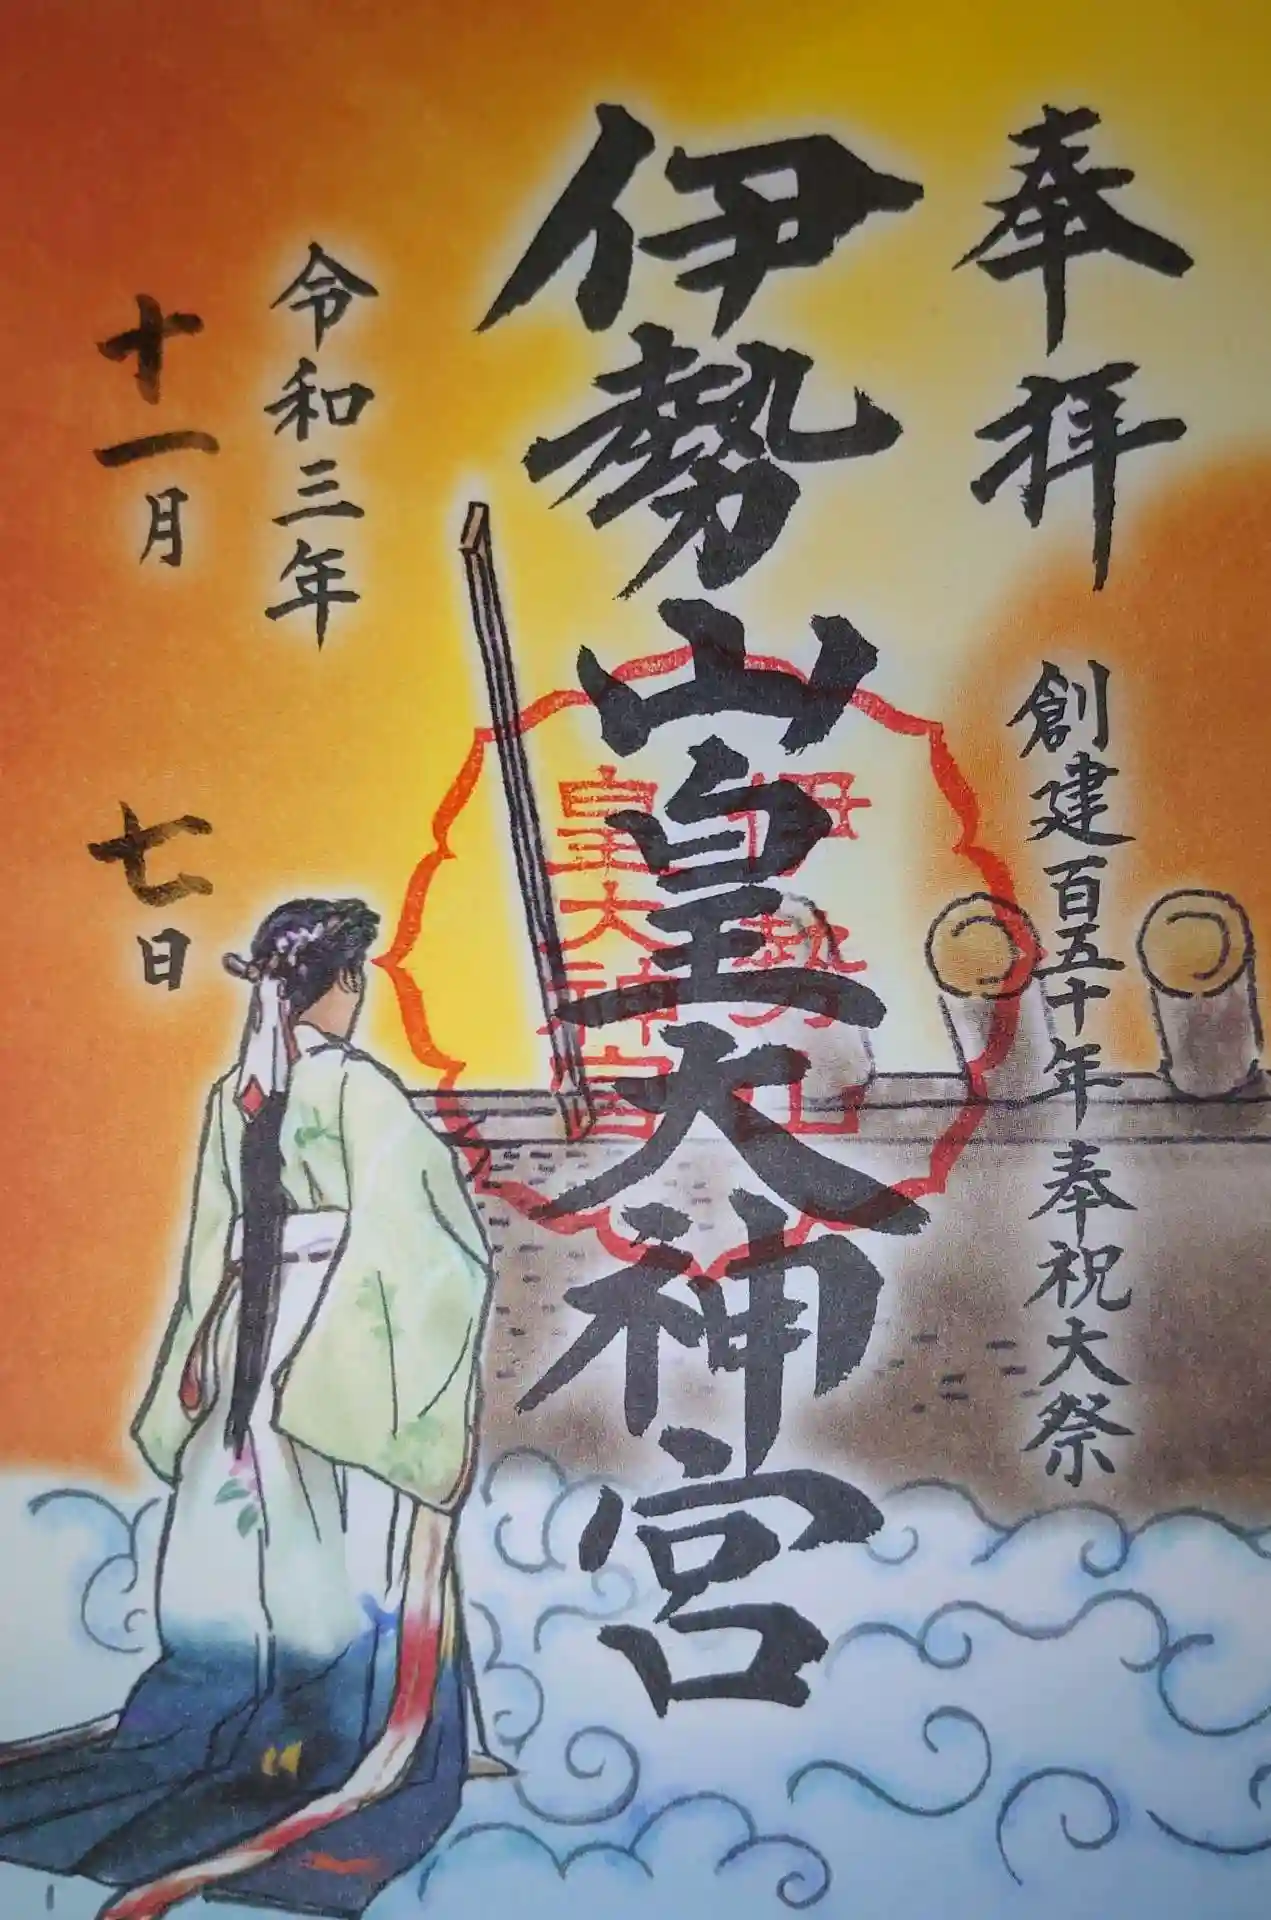 奉拝
創建百五十年奉祝大祭
伊勢山皇大神宮
伊勢山
皇大神宮
令和三年
十一月
七日